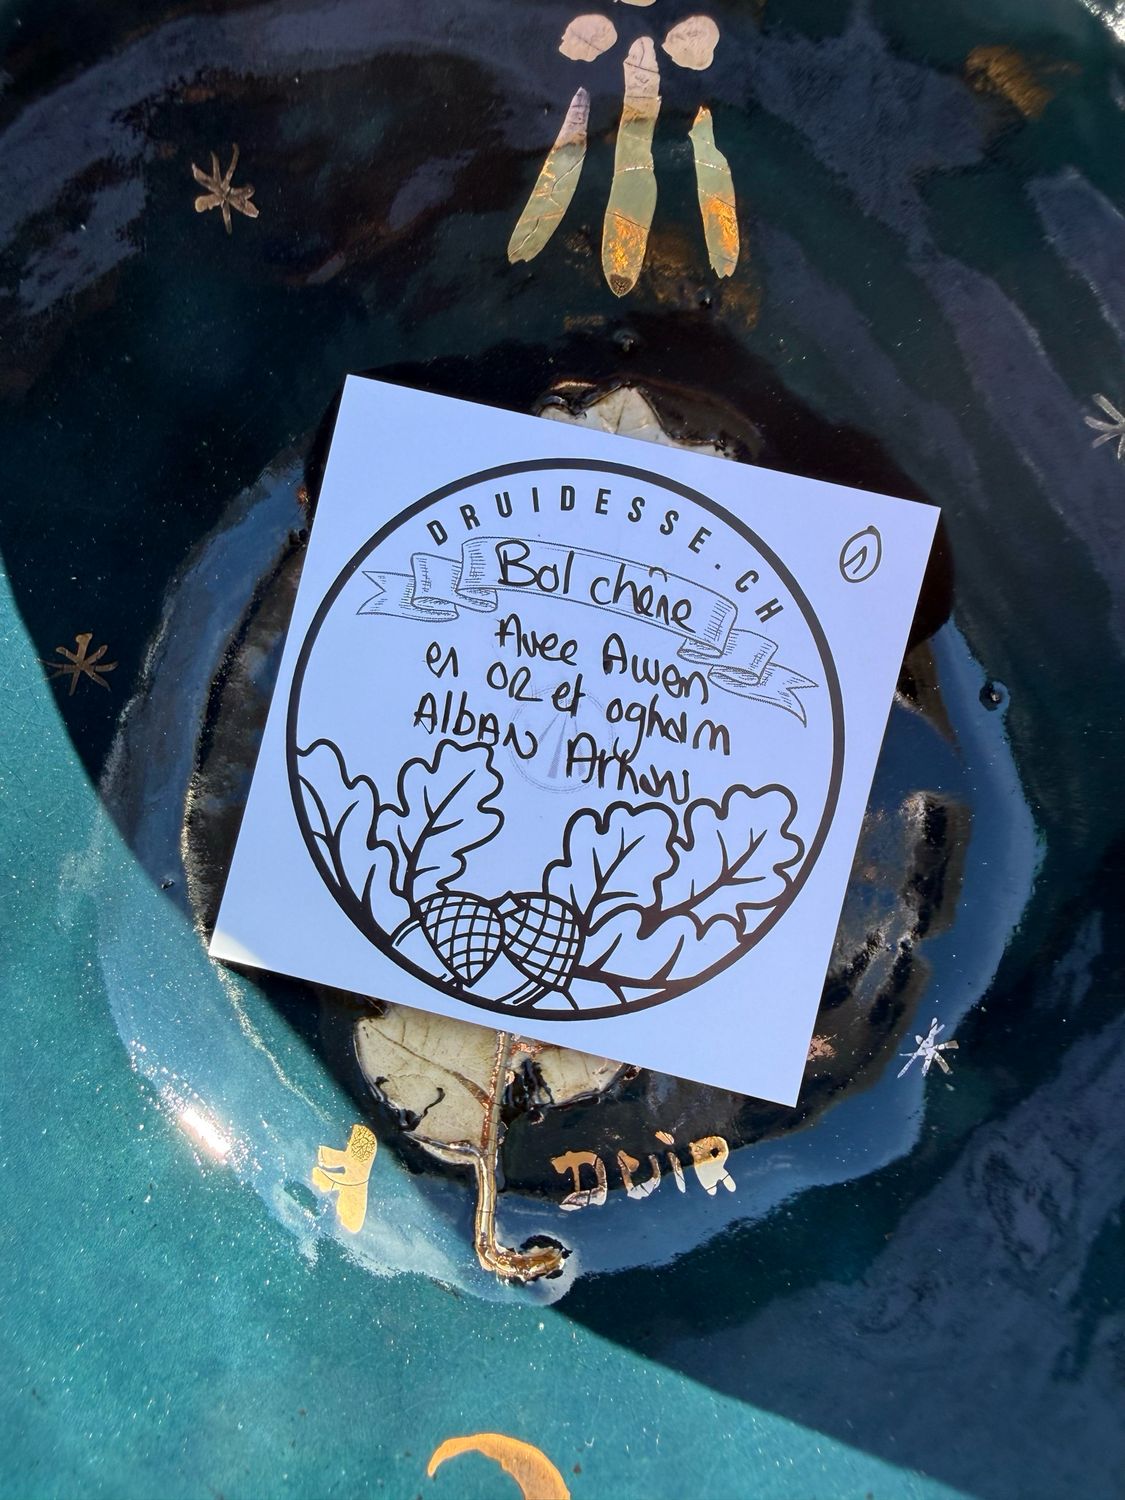 DRUIDESSE.CH
Bol chêne
Avec Awen
en OR et ogham
AlbAN
DUIR